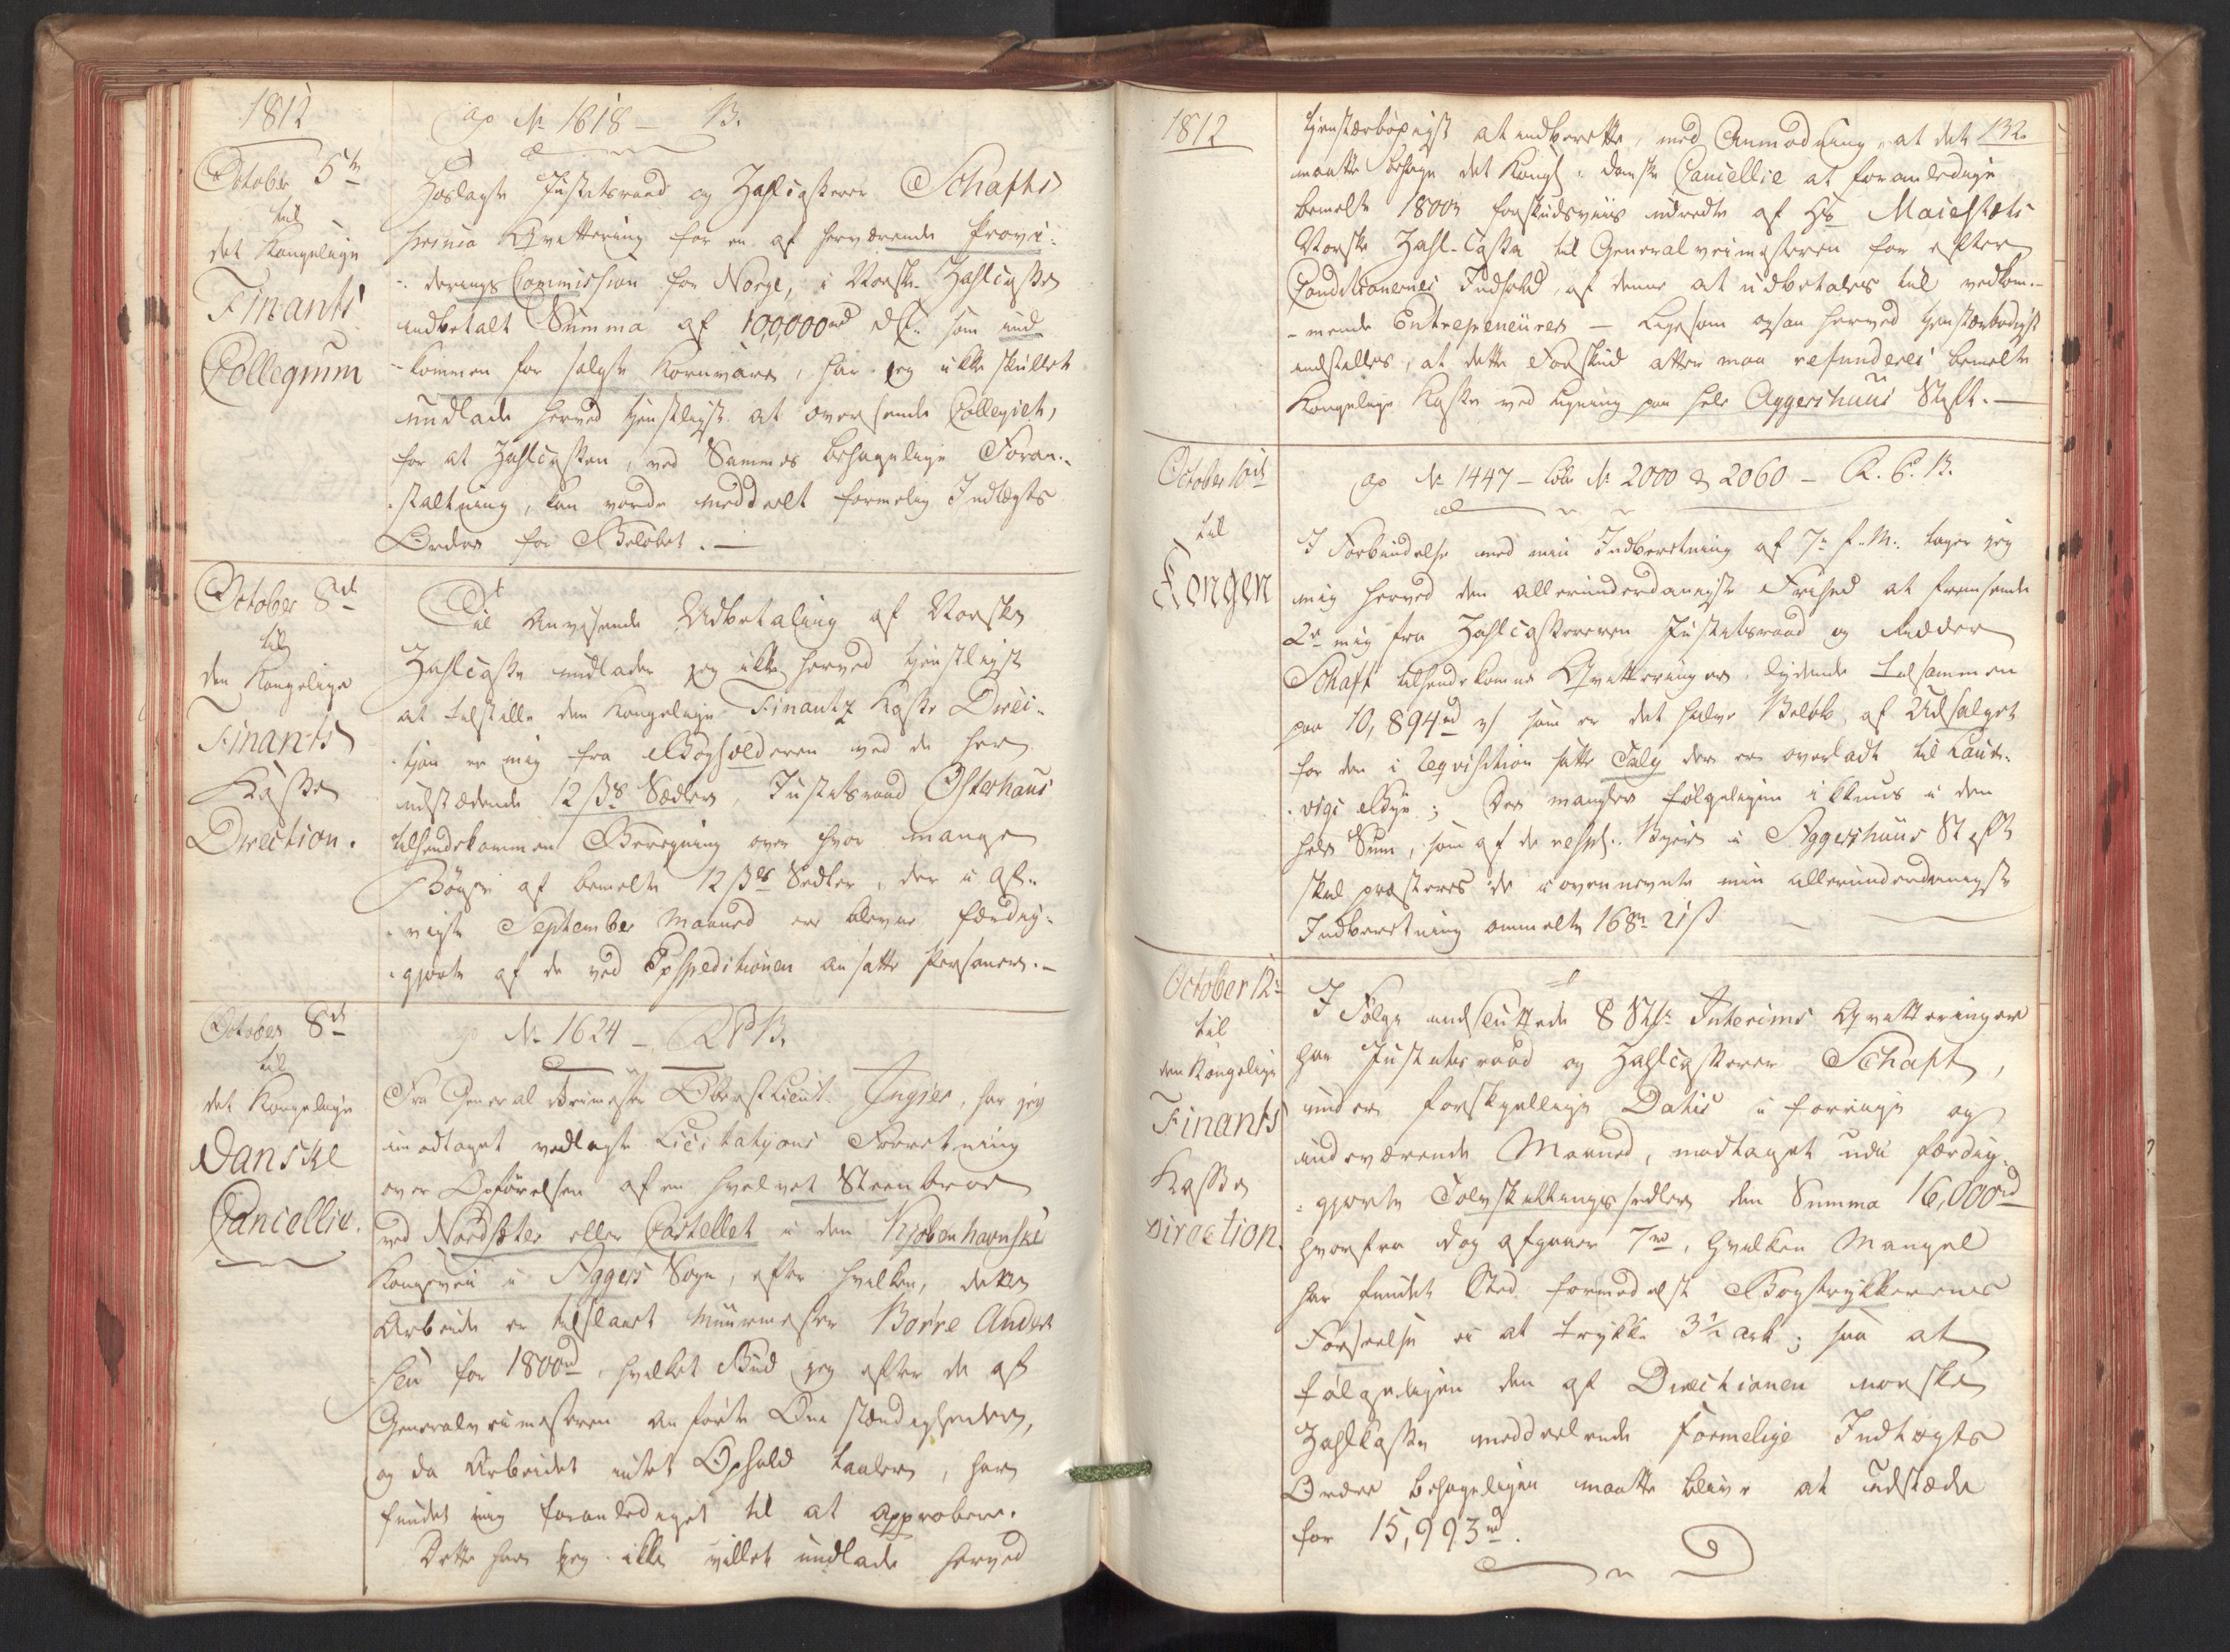 1812
ap No 1618 – B.
October 5te
til
det Kongelige
Finants
Collegium
Hoslagte Justitsraad og Zahlcasserer Schafts
Interims Qvittering for en af herværende Provi-
derings Commission for Norge, i Norske Zahlcasse
indbetalt Summa af 100,000rd DC. som ind-
kommen for solgte Kornvare, har jeg ikke skullet
undlade herved tjenstligst at oversende Collegiet,
for at Zahlcassen, ved Sammes behagelige Foran-
staltning, kan vorde meddeelt formelig Indtægts
Ordre for Beløbet. –
October 8de
til
den Kongelige
Finants
Kasse
Direction.
Til Anvisende Udbetaling af Norske
Zahlcasse undlader jeg ikke herved tjenstligst
at tilstille den Kongelige Finantz Kasse Direc-
tion en mig fra Bogholderen ved de her
udstædende 12 ß's Sedler, Justitsraad Osterhaus
tilhændekommen Beregning over hvor mange
Bøger af bemelte 12 ß's Sedler, der i af-
vigte September Maaned ere blevne færdig-
gjorte af de ved Expeditionen ansatte Personer. –
October 8de
til
det Kongelige
Danske
Cancellie.
ap No 1624 – R P B.
Fra General Veimester Oberstlieut. Ingier, har jeg
imodtaget vedlagte Licitations Forretning
over Opførelsen af en hvelvet Steenbroe
ved Nordseter eller Castellet i den Kjøbenhavnske
Kongevei i Aggers Sogn, efter hvilken, dette
Arbeide er tilslaaet Muurmester Børre Ander-
sen for 1800rd, hvilket Bud jeg efter de af
Generalveimesteren anførte Omstændigheder,
og da Arbeidet intet Ophold taaler, har
fundet mig foranlediget til at approbere.
Dette har jeg ikke villet undlade herved
1812
132.
tjenstærbødigst at indberette, med Anmodning, at det
maatte behage det Kongl. danske Cancellie at foranledige
bemelte 1800rd forskudsviis udredte af Hs Maiestæts
Norske Zahl-Casse til Generalveimesteren for efter
Conditionernes Indhold, af denne at udbetales til vedkom-
mende Entrepeneurer – Ligesom ogsaa herved tjenstærbødigst
indstilles, at dette Forskud atter maa refunderes bemelte
Kongelige Kasse ved Ligning paa hele Aggershuus Stift. –
October 10de
til
Kongen
ap No 1447 – No 2000 & 2060 – R. P. B.
I Forbindelse med min Indberetning af 7de f. M. tager jeg
mig herved den allerunderdanigste Frihed at fremsende
2de mig fra Zahlcassereren Justitsraad og Ridder
Schaft tilhændekomne Qvitteringer, lydende tilsammen
paa 10,894rd som er det halve Beløb af Udsalget
for den i Reqvisition satte Talg der er overladt til Laur-
vigs Bye; Der mangler følgeligen ikkuns i den
hele Sum, som af de resp. Byer i Aggershuus Stift
skal præsteres de i ovennevnte min allerunderdanigste
Indberetning ommelte 168rd 21ß
October 12te
til
den Kongelige
Finants
Kasse
Direction.
I Følge indsluttede 8 Stk. Interims Qvitteringer
har Justitsraad og Zahlcasserer Schaft,
under forskjellige Datis i forrige og
indeværende Maaned, modtaget udi færdig-
gjorte Tolvskillingssedler den Summa 16,000rd
hvorfra dog afgaaer 7rd, hvilken Mangel
har fundet Sted formedelst Bogtrykkerens
Forseelse i at trykke 3½ ark; saa at
følgeligen den af Directionen norske
Zahlkasse meddeelende formelige Indtægts
Ordre behageligen maatte blive at udstæde
for 15,993rd.